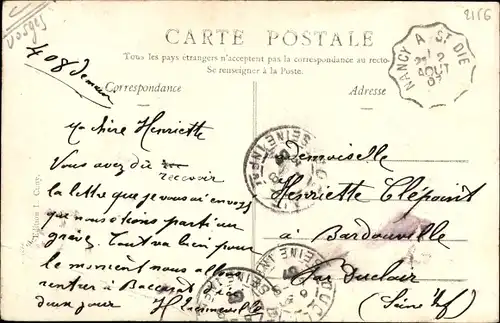 Vosges
2156
408
CARTE POSTALE
Tous les pays étrangers n'acceptent pas la correspondance au recto
Se renseigner à la Poste.
Correspondance
Adresse
NANCY A ST DIE
2
AOUT
07
Ma chère Henriette
Vous avez dû
recevoir
la lettre que je vous ai envoyé
que nous étions parti en
grève. Tout va bien pour
le moment nous allons
rentrer à Baccarat
deux jour
Demoiselle
Henriette Clépoint
à Bardouville
Par Duclair
(Seine Inf)
SEINE INF